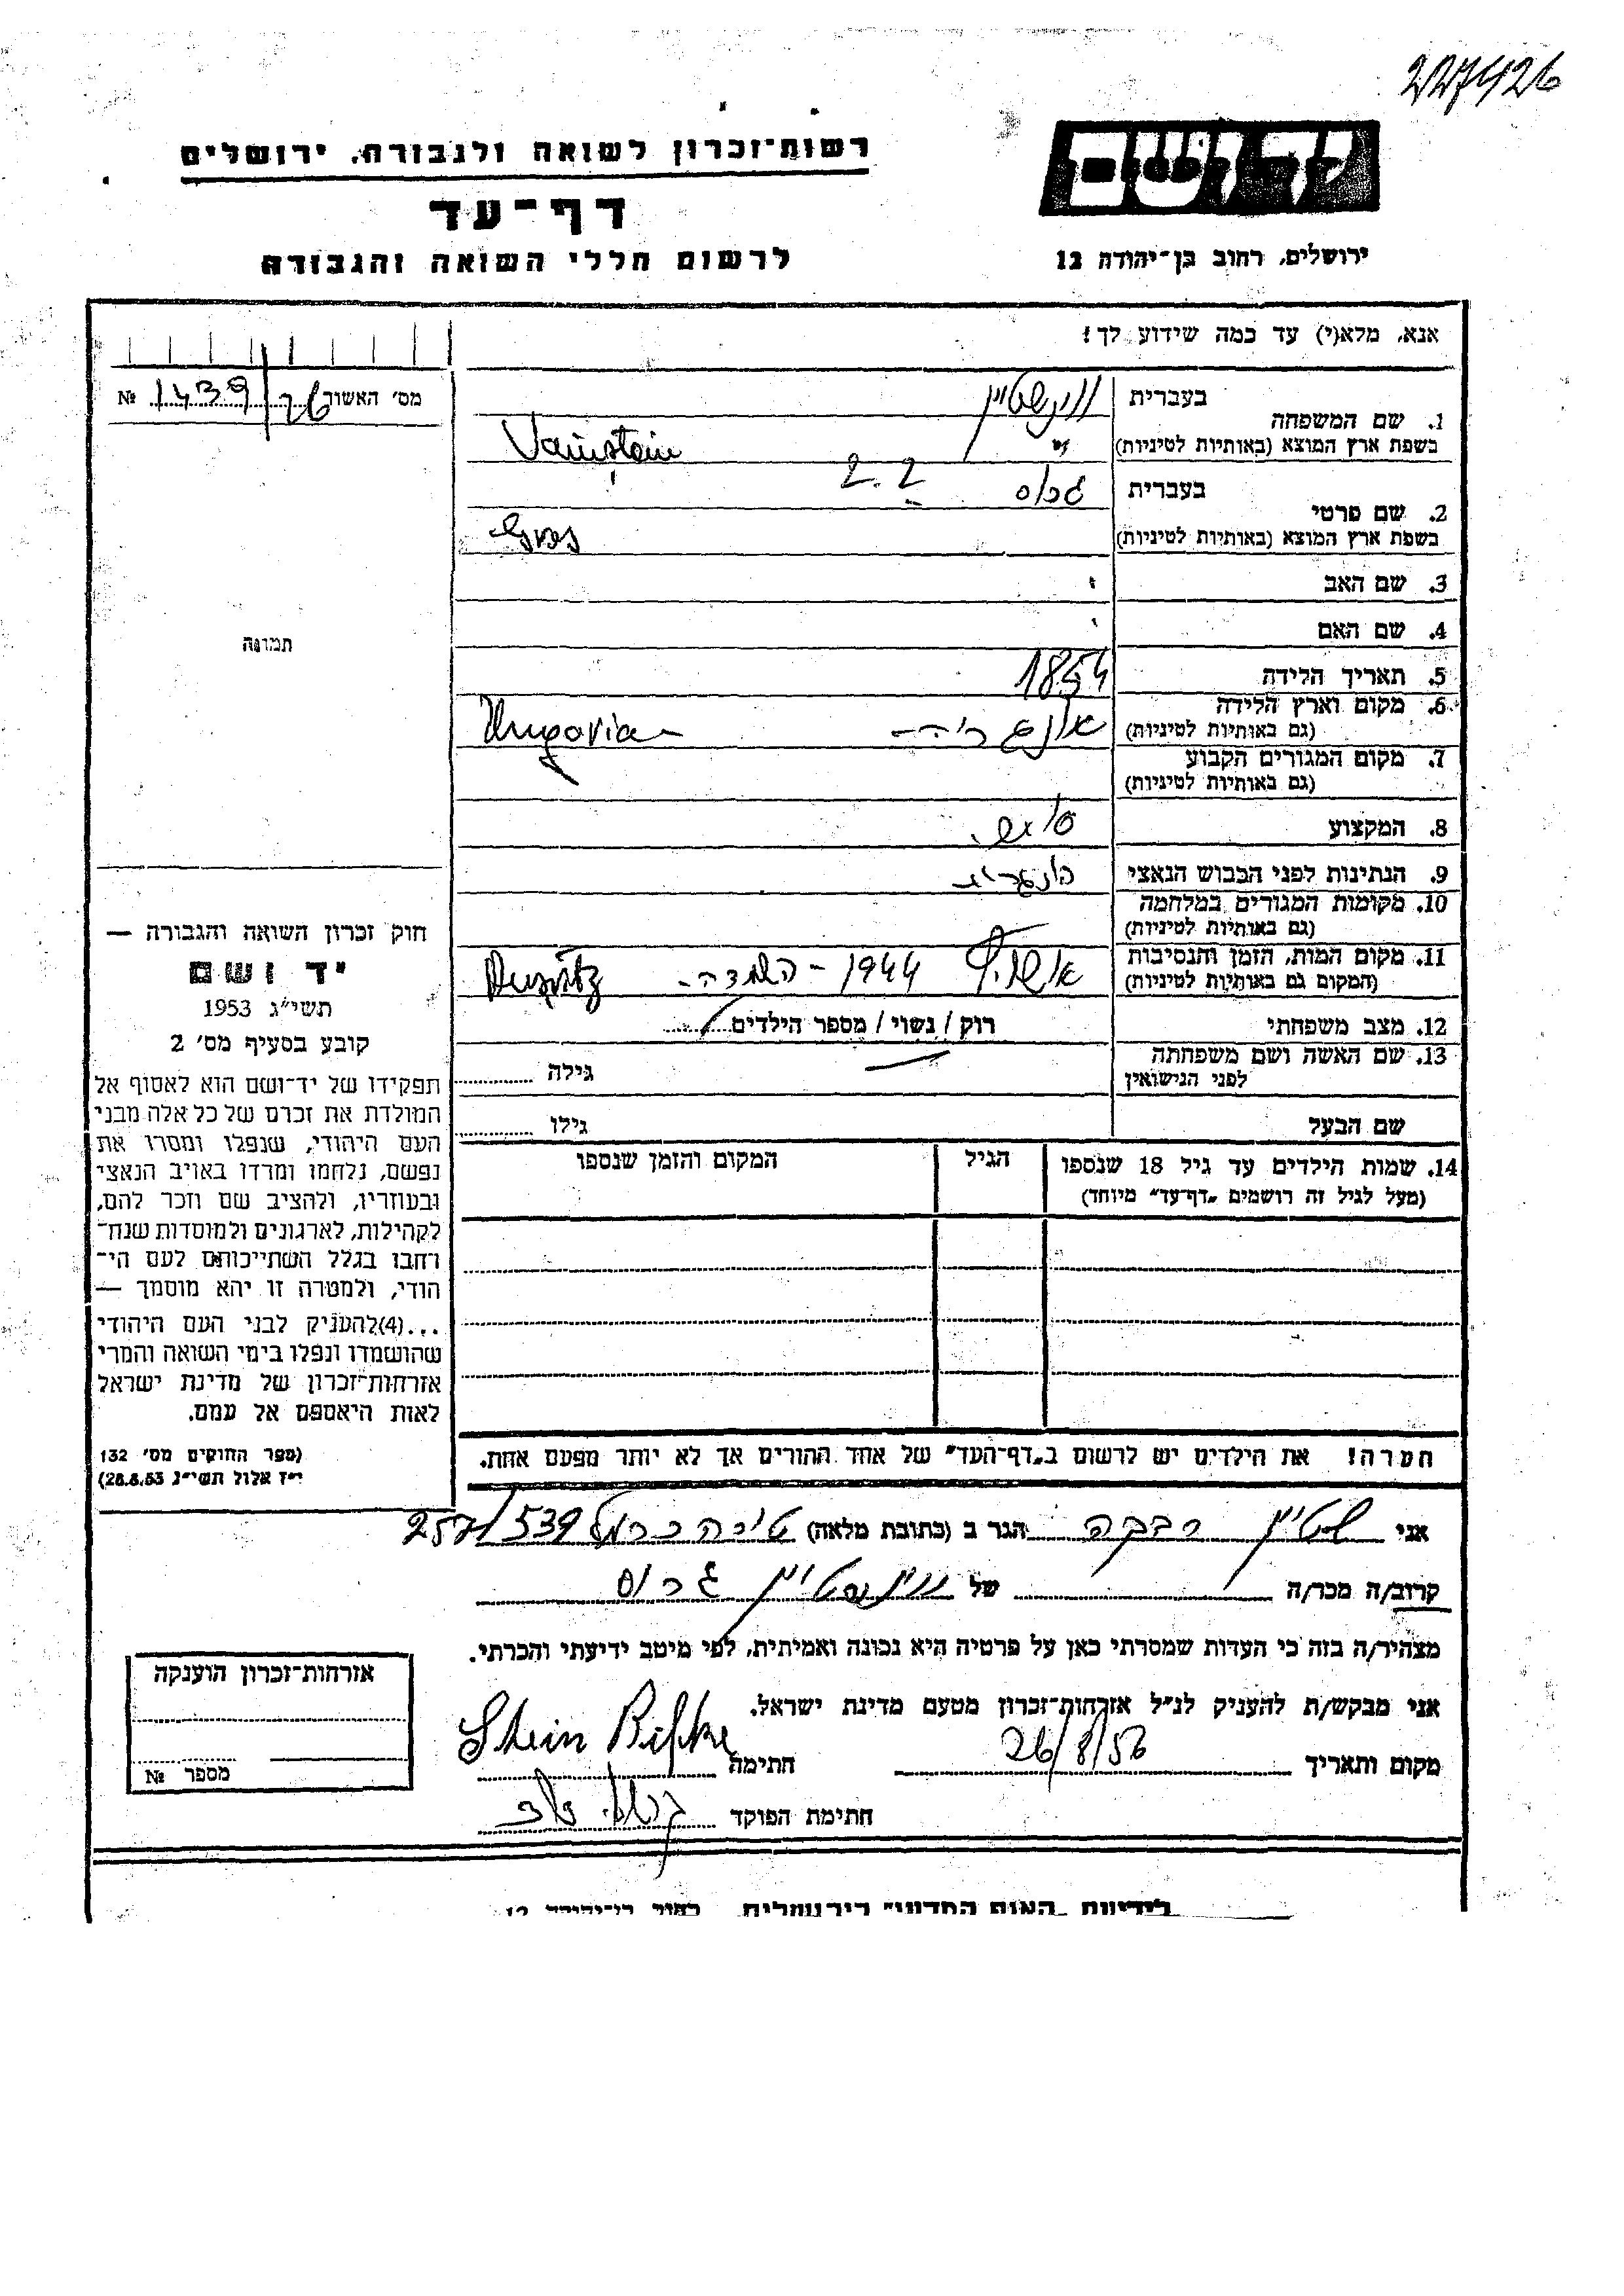 227426
יד ושם
רשות־זכרון לשואה ולגבורה, ירושלים
דף־עד
ירושלים, רחוב בן־יהודה 12
לרשום חללי השואה והגבורה
אנא, מלא(י) עד כמה שידוע לך!
מס׳ האשור 26/1439 №
1. שם המשפחה
בעברית ווינשטיין
בשפת ארץ המוצא (באותיות לטיניות) Vainstein
2. שם פרטי
בעברית גרוס
בשפת ארץ המוצא (באותיות לטיניות) Gros
3. שם האב
4. שם האם
5. תאריך הלידה 1854
6. מקום וארץ הלידה
(גם באותיות לטיניות) אונגריה- Hungaria-
7. מקום המגורים הקבוע
(גם באותיות לטיניות)
8. המקצוע
9. הנתינות לפני הכבוש הנאצי
10. מקומות המגורים במלחמה
(גם באותיות לטיניות)
11. מקום המות, הזמן והנסיבות
(המקום גם באותיות לטיניות) 1944 - השמדה-
12. מצב משפחתי רוק / נשוי / מספר הילדים
13. שם האשה ושם משפחתה
לפני הנישואין
גילה
שם הבעל
גילו
14. שמות הילדים עד גיל 18 שנספו
(מעל לגיל זה רושמים „דף־עד״ מיוחד)
הגיל
המקום והזמן שנספו
תמונה
חוק זכרון השואה והגבורה —
יד ושם
תשי״ג 1953
קובע בסעיף מס׳ 2
תפקידו של יד־ושם הוא לאסוף אל
המולדת את זכרם של כל אלה מבני
העם היהודי, שנפלו ומסרו את
נפשם, נלחמו ומרדו באויב הנאצי
ובעוזריו, ולהציב שם וזכר להם,
לקהילות, לארגונים ולמוסדות שנח־
רחבו בגלל השתייכותם לעם הי־
הודי, ולמטרה זו יהא מוסמך —
...(4)להעניק לבני העם היהודי
שהושמדו ונפלו בימי השואה והמרי
אזרחות־זכרון של מדינת ישראל
לאות היאספם אל עמם.
(ספר החוקים מס׳ 132
י״ז אלול תשי״ג 28.8.53)
הערה! את הילדים יש לרשום ב„דף־העד״ של אחד ההורים אך לא יותר מפעם אחת.
אני שטיין רבקה הגר ב (כתובת מלאה) טירה כרמל 257/539
קרוב/ה מכר/ה של ווינשטיין גרוס
מצהיר/ה בזה כי העדות שמסרתי כאן על פרטיה היא נכונה ואמיתית, לפי מיטב ידיעתי והכרתי.
אני מבקש/ת להעניק לנ״ל אזרחות־זכרון מטעם מדינת ישראל.
מקום ותאריך 26/8/56 חתימה Shein Rifke
חתימת הפוקד
אזרחות־זכרון הוענקה
מספר №